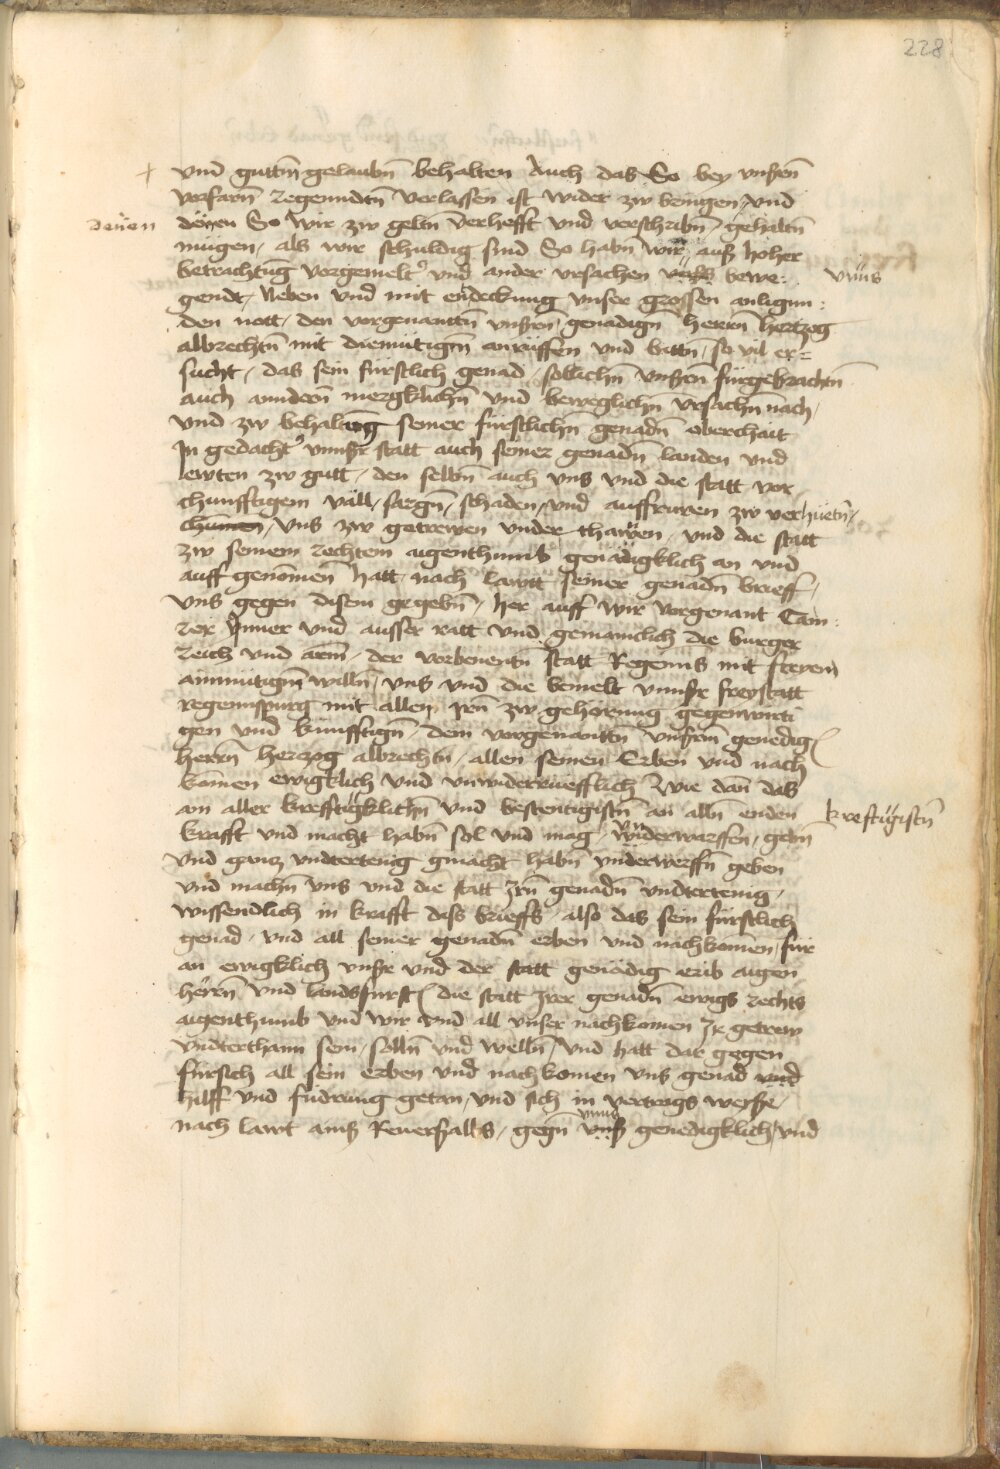 228
+ vnd guttm̄ gelaubn̄ behalten Auch das So bey vnßern̄
vorfarn̄ Regenndtn̄ verlassen ist wider zw benügen, vnd
denen
denen So wir zw geltn̄ verhefft vnd verschribn̄, gehaltn̄
mügen, als wir schuldig sind So habn̄ wir auß hoher
betrachtūg vorgemelt' vnd ander vrsachen bewe:
vnns
gende, Neben vnd mit endeckung vnser grossen anligun:
den nott, den vorgenanttn̄ vnßern̄ genadign̄ herrn̄ hertzog
albrechtn̄ mit diemütigm̄ anrüffen vnd bittn̄, so vil er=
sucht, das sein fürstlich genad, sollichn̄ vnßern̄ fürgebrachtn̄
auch anndern̄ mergklichn̄ vnd beweglichn̄ vrsachn̄ nach,
vnd zw behaltūg seiner fürstlichn̄ genadn̄ oberchait
In gedacht' vnnßr statt auch seiner genadn̄ landen vnd
lewten zw gutt, den selbn̄ auch vns vnd die statt vor
chunfftigem väll, sorgn̄, schaden, vnd auffruren zw verhüetn̄,
chumen, vns zw getrewen vnder thanen, vnd die statt
zw seinem rechtem aigenthumb genädigklich an vnd
auff genomen hatt, nach lawtt seiner genadn̄ brieff,
vns gegen disem gegebn̄, her auff wir vorgenant Cam:
rer ynner vnd ausser ratt vnd gemainclich die burger
Reich vnd arm̄, der vorbenentn̄ statt Regenns mit freyem
ainmütigm̄ willn̄, vns vnd die bemelt vnnßr freystatt
regennspurg mit allen jren̄ zw gehorung gegenwurti
gen vnd kunfftign̄, dem vorgenanttn̄ vnßerm̄ genedig
herrn̄ herczog albrechtn̄, allen seinen Erben vnd nach
komen ewigklich vnd vnwiderruefflich Wie dan̄ das
an aller krefftigklichn̄ vnd bestentigistn̄ an alln̄ enden
kreftigistn̄
krafft vnd macht habn̄ sol vnd mag, vnderworffen, gebn̄
vnd gancz vndtertenig gmacht habn̄ vnderwerffn̄ geben
vnd machn̄ vns vnd die statt Irn̄ genadn̄ vndtertenig,
wissendlich in krafft diss brieffs, also das sein fürstlich
genad, vnd all seiner genadn̄ erben vnd nachkomen, für
an ewigklich vnßr vnd der statt genädig erib aigen
herrn̄ vnd landsfürst, die statt Irer genadn̄ ewigs rechts
aigenthumb vnd wir vnd all vnser nachkomen Ir getrew
vndterthann sein, solln̄ vnd welln̄, vnd hatt dar gegen
fürsich all sein erben vnd nachkomen vns genad vnd
hilff vnd fudrung getan, vnd sich in vertrags weyße,
nach lawt ainß Reuerßalls, gegn̄ vnnß genedigklich, vnd